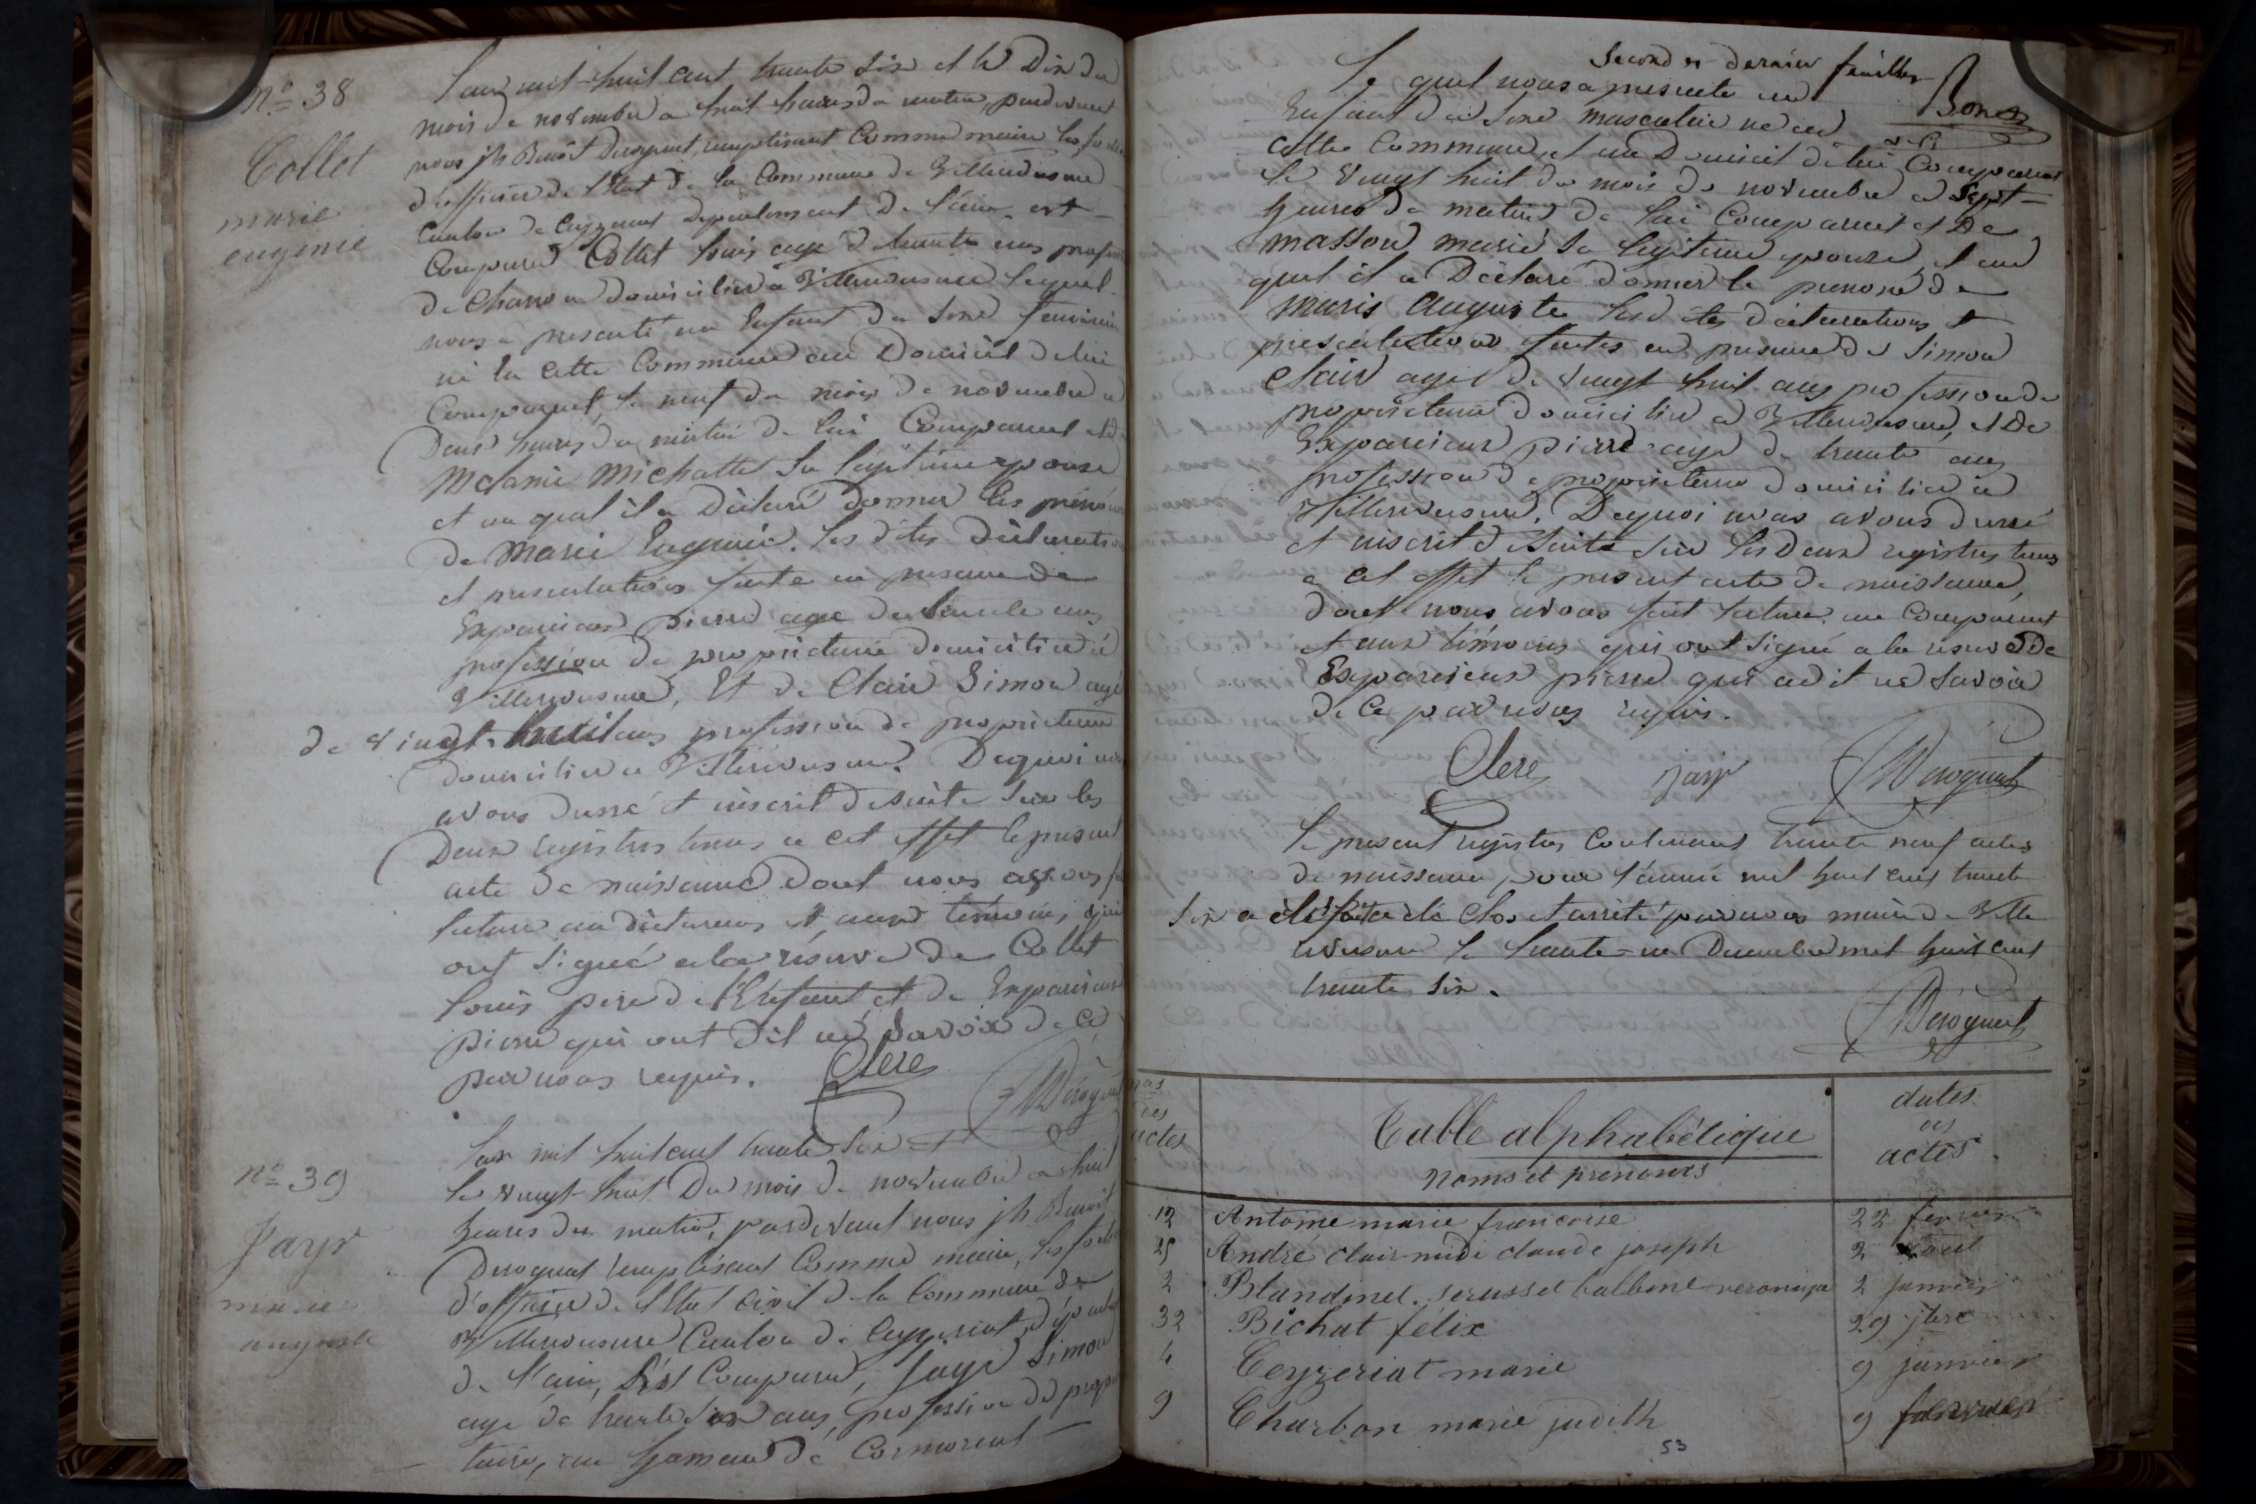 n° 38
Collet
marie
eugenie
L'an mil huit cent trente six et le Dix du
mois de novembre a huit heures du matin, pardevant
nous jh Benoit Duroquat, remplissant Comme maire les fonc
d'officier de l'Etat de la Commune de Villereversure
Canton de Ceyzeriat Departement de l'ain, est
Comparu Collet Louis age de trente ans profession
de Charron domicilié a Villereversure lequel
nous a presenté un Enfant du Sexe feminin
né En cette Commune au Domicile de lui
Comparant, le neuf du mois de novembre a
Deux heures du matin de lui Comparant et de
Melanie Michallet Sa légitime epouse
et au quel il a Déclaré Donner les prénoms
de Marie Eugenie. Les dites Déclaration
et presentation faite en presence de
Exparieux pierre age de trente ans
profession de proprietaire domicilié à
Villereversure, Et de Clair Simon agé
de vingt huit ans profession de proprietaire
domicilié a Villereversure. Dequoi nous
avons dressé et inscrit de suite Sur les
Deux registres tenus a cet effet le present
acte de naissance dont nous avons fait
lecture au déclarans et aux témoins, qui
ont Signé a la réserve de Collet
Louis père de l'Enfant et de Exparieux
pierre qui ont dit ne Savoir de ce
par nous requis.
Clere
Duroquat
n° 39
Jayr
marie
auguste
L'an mil huit cent trente six et
le vingt huit Du mois de novembre a huit
heures du matin, pardevant nous jh Benoit
Duroquat remplissant Comme maire, les fonct
d'officier de l'Etat Civil de la Commune de
Villereversure Canton de Ceyzeriat, départ
de l'ain, Est Comparu, Jayr Simon
age de trente Six ans, profession de propri
taire, au hameau de Cormorent
Second et dernier feuillet
Le quel nous a presenté un
Enfant du Sexe masculin né en
cette Commune, et au Domicile de lui Comparant
le vingt huit du mois de novembre a Sept
heures du matin de lui Comparant et De
Masson marie Sa légitime epouse, et au
quel il a Déclaré donner le prenom de
Marie Auguste Lesdites déclarations et
presentations faites en presence de Simon
Clair agé de vingt huit ans profession de
proprietaire domicilié a Villereversure, et De
Exparieux pierre age de trente ans
profession de proprietaire domicilié a
Villereversure. Dequoi nous avons dressé
et inscrit de Suite Sur les Deux registres tenus
a cet effet le present acte de naissance,
dont nous avons fait lecture au Comparant
et aux témoins qui ont Signé a la reserve de
Exparieux pierre qui a dit ne Savoir
de ce par nous requis.
Clere Jayr Duroquat
Le present registre Contenant trente neuf actes
de naissance pour l'année mil huit cent trente
Six a été Clos et arrêté par nous maire de Ville
reversure le trente un Decembre mil huit cent
trente Six.
Duroquat
nos
des
actes
Table alphabétique
Noms et prénoms
dates
des
actes
12 Antoine marie francoise 22 fevrier
25 André clair-midi claude joseph 2 aout
2 Blandinet. balbine veronique 2 janvier
32 Bichat félix 29 7bre
4 Ceyzeriat marie 9 janvier
9 Charbon marie judith 9 fevrier
53